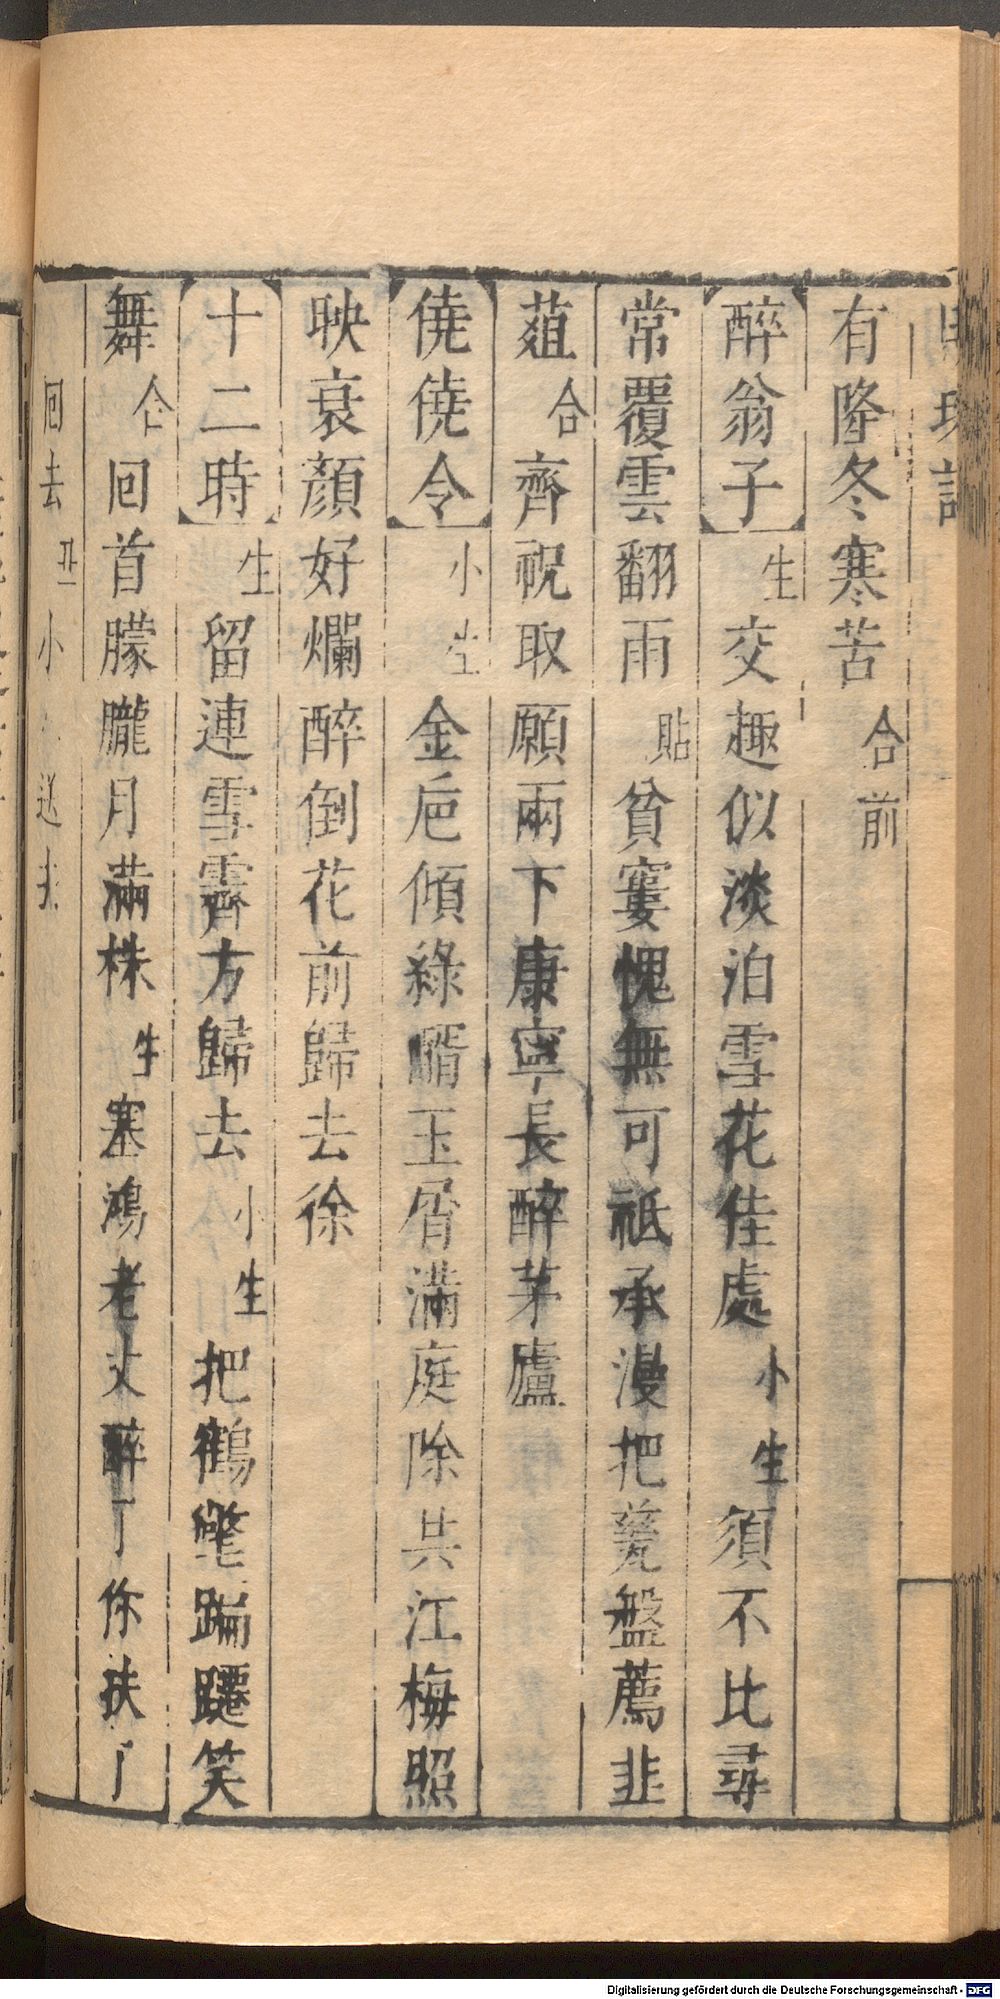 有隆冬寒苦 合前
醉翁子 生 交趣似淡泊雪花佳處 小生 須不比尋
常覆雲翻雨 貼 貧窶愧無可祗承漫把甆盤薦韭
葅 合 齊祝取願兩下康寧長醉茅廬
僥僥令 小生 金巵傾綠醑玉屑滿庭除共江梅照
映衰顏好爛醉倒花前歸去徐
十二時 生 留連雪霽方歸去 小生 把鶴氅蹁躚笑
舞 仝 回首朦朧月滿株 生 塞鴻老丈醉了你扶了
回去 丑 小 送去
Digitalisierung gefördert durch die Deutsche Forschungsgemeinschaft - DFG